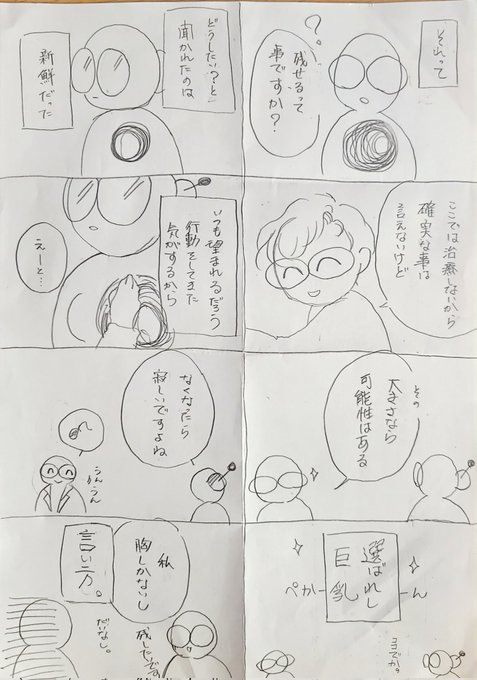 それって
残せるって
事ですか？
？
ここでは治療しないから
確実な事は
言えないけど
その
大きさなら
可能性はある
選ばれし
巨乳
ぺかーーん
ココでか。
どうしたい？と
聞かれたのは
新鮮だった
いつも望まれるだろう
行動をしてきた
気がするから
えーと…
なくなったら
寂しいですよね
うんうん
私
胸しかないし
残したいです
言い方。
だいなし。